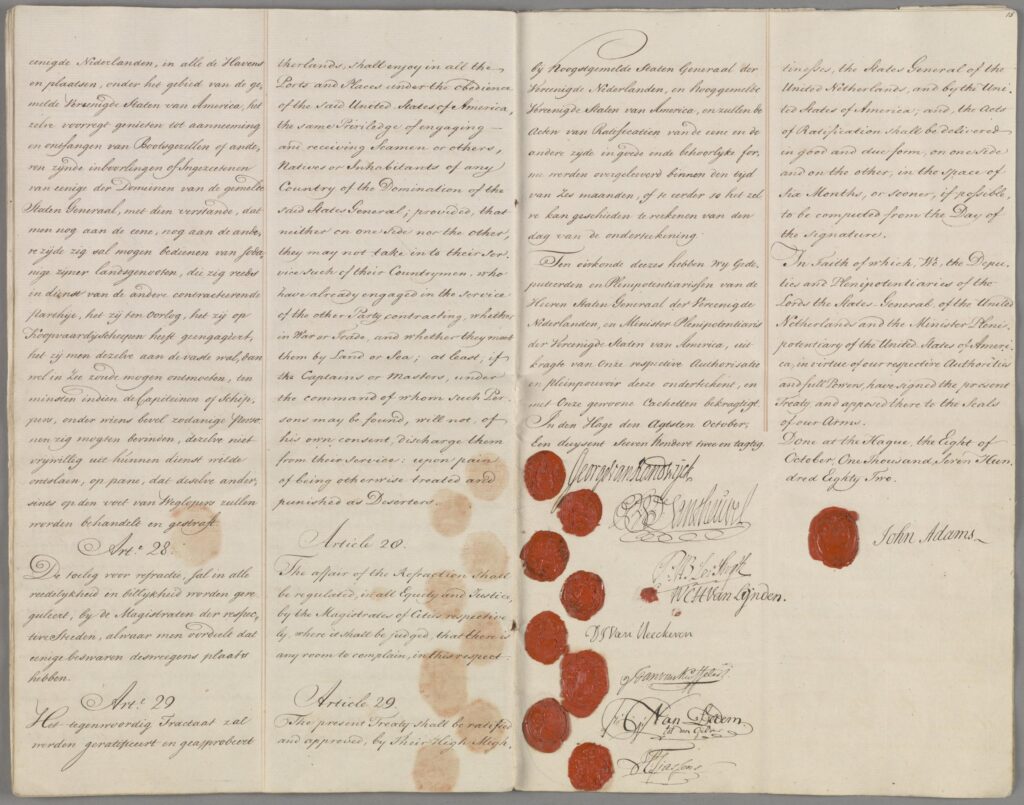 eenigde Nederlanden, in alle de Havens
en plaatsen, onder het gebied van de ge,
melde Vereenigde Staten van America, het
zelve voorregt genieten tot aanneeming
en ontfangen van Bootsgezellen of ande,
ren zynde inboorlingen of Ingezetenen
van eenige der Dominien van de gemelte
Staten Generaal, met dien verstande, dat
men nog aan de eene, nog aan de ande,
re zijde zig sal mogen bedienen van sode,
nige zijner landsgenooten, die zig reeds
in dienst van de andere contracteerende
partije, het zij ten oorlog, het zij op
Koopvaardijscheepen heeft geengageert,
het zij men dezelve aan de vaste wal, dan
wel in Zee zoude mogen ontmoeten, ten
minsten indien de Capiteinen of Schip,
pers, onder wiens bevel zodanige Perso
nen zig mogten bevinden, dezelve niet
vrijwillig uit hunnen dienst wilde
ontslaen, op pane, dat deselve ander,
sints op den voet van Weglopers zullen
werden behandelt en gestraft.
Art.e 28
De toeleg voor refractie, sal in alle
reedelijkheid en billijkheid werden gere,
guleert, by de Magistraten der respec,
tive Steeden, alwaar men oordeele dat
eenige beswaren desweegens plaats
hebben.
Art.e 29
Het tegenwoordig Tractaat zal
werden geratificeert en geapprobeert
therlands, shall enjoy in all the
Ports and Places under the obedience
of the said United States of America,
the same Priviledge of engaging —
and receiving Seamen or others,
Natives or Inhabitants of any
Country of the Domination of the
said States General; provided, that
neither on one Side nor the other,
they may not take into their Ser,
vice such of their Countrymen, who
have already engaged in the Service
of the other Party contracting, whether
in War or Trade, and whether they meet
them by Land or Sea; at least, if
the Captains or Masters, under
the command of whom such Per,
sons may be found, will not, of
his own consent, discharge them
from their Service: upon pain
of being otherwise treated and
punished as Deserters.
Article 28.
The affair of the Refraction shall
be regulated, in all Equity and Justice,
by the Magistrates of Cities respective
ly, where it shall be judged, that there is
any room to complain, in this respect.
Article 29.
The present Treaty shall be ratified
and approved, by Their High Migh,
by Hoogstgemelde Staten Generaal der
Vereenigde Nederlanden, en Hooggemelde
Vereenigde Staten van America, en zullen de
Acten van Ratificatien van de eene en de
andere zyde in goede ende behoorlyke for,
me werden overgelevert binnen den tijd
van Zes maanden, of te eerder so het zel
ve kan geschieden te rekenen van den
dag van de ondertekening.
Ten oirkonde deezes hebben Wij Gede,
puteerden en Plenipotentiarissen van de
Heeren Staten Generaal der Vereenigde
Nederlanden, en Minister Plenipotentiaris
der Vereenigde Staten van America, uit
kragte van Onze respective Authorisatie
en pleinpouvoir deeze ondertekent, en
met Onze gewoone Cachetten bekragtigt.
In den Hage den Agtsten October,
Een duysent Seeven hondert twee en tagtig.
George van Randwijck
W.C.H. van Lynden.
D. I. Van Heeckeren
Joan van Kuffeler
Van Dedem
tot den Gelder
H. Tjassens
10
tinesses, the States General of the
United Netherlands, and by the Uni,
ted States of America; and, the Acts
of Ratification shall be delivered
in good and due form, on one side
and on the other, in the space of
Six Months, or sooner, if possible,
to be computed from the Day of
the Signature.
In Faith of which, We, the Depu,
ties and Plenipotentiaries of the
Lords the States General of the United
Netherlands and the Minister Pleni,
potentiary of the United States of Ameri,
ca, in virtue of our respective Authorities
and full Powers, have signed the present
Treaty and apposed thereto the Seals
of our Arms.
Done at the Hague, the Eight of
October, One Thousand Seven Hun,
dred Eighty Two.
John Adams